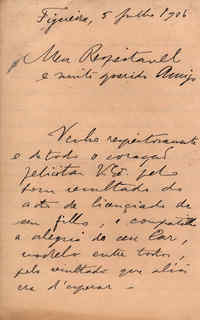 Figueira, 5 Julho 1906
Meu Respeitavel
e muito querido Amigo
Venho respeitosamente
e de todo o coração
felicitar V. Exª pelo
bom resultado do
acto de licenciado de
seu filho, e compartilho
a alegria do seu Lar,
modelo entre todos,
pelo resultado que aliás
era d'esperar —